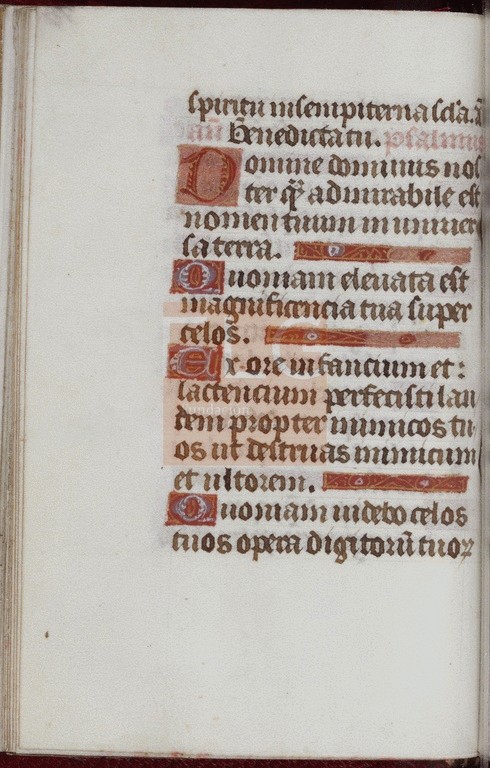 spiritu in sempiterna scła. añ
añ Benedicta tu. psalmus
Domine dominus nos
ter qͥ admirabile est
nomen tuum in univer
sa terra.
Quoniam elevata est
magnificencia tua super
celos.
Ex ore infancium et :
lactencium perfecisti lau
dem propter inimicos tu
os ut destruas inimicum
et ultorem.
Quoniam videbo celos
tuos opera digitorũ tuoꝝ
fundación